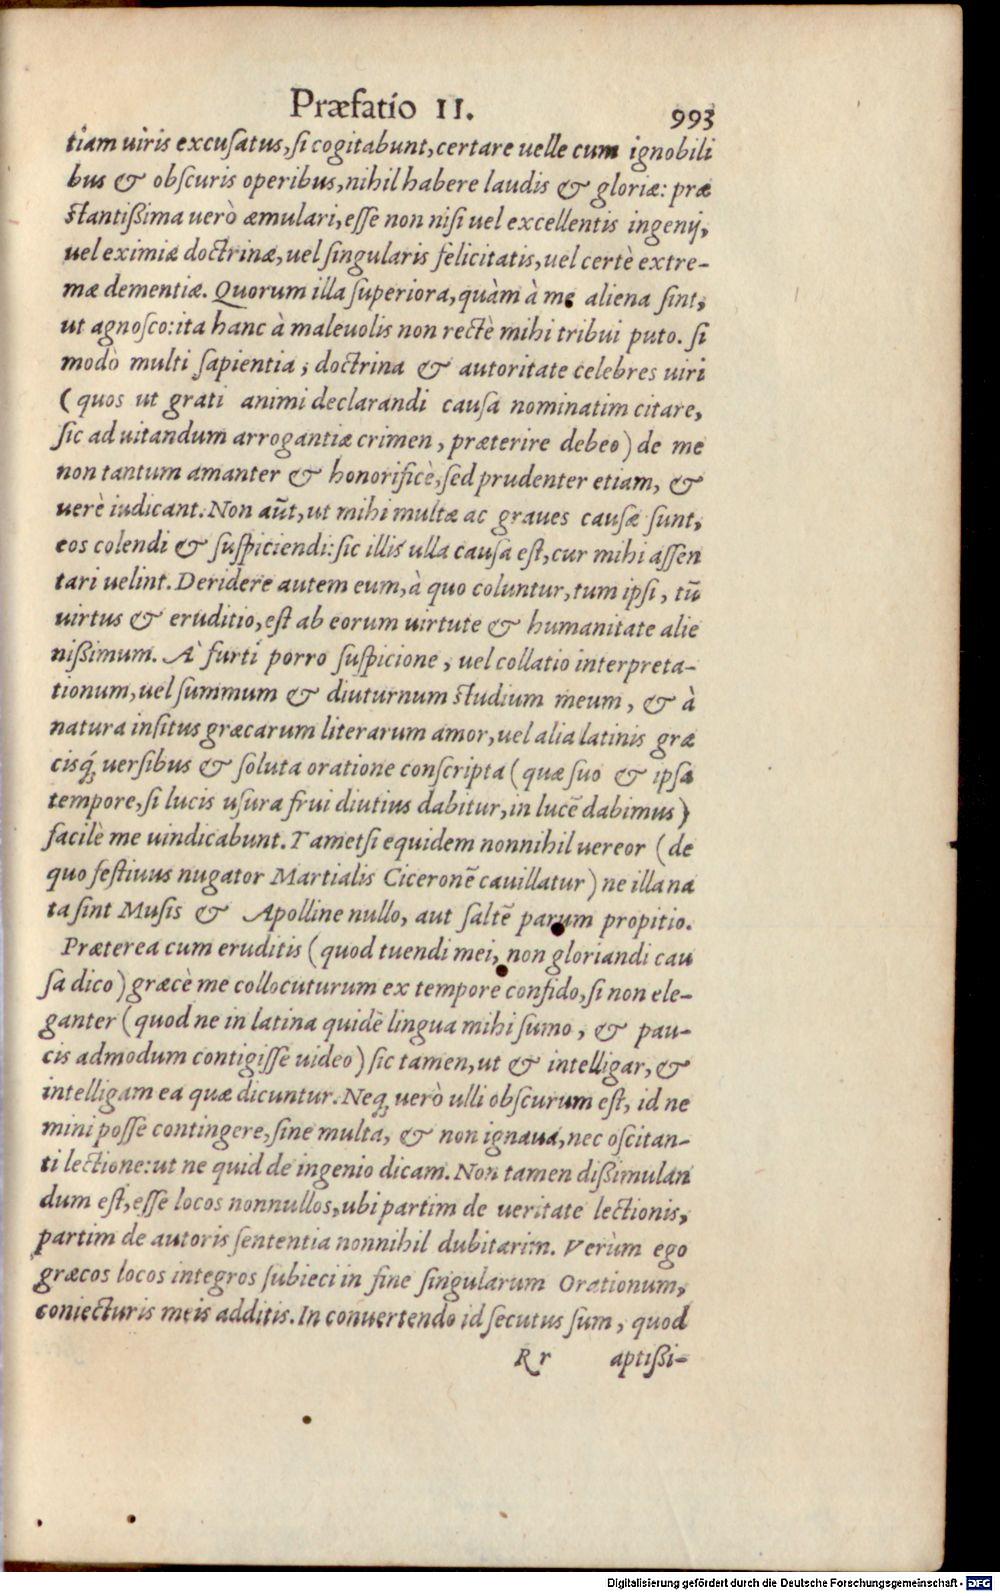 Præfatio II. 993
tiam uiris excuſatus, ſi cogitabunt, certare uelle cum ignobili
bus & obſcuris operibus, nihil habere laudis & gloriæ: præ
ſtantißima uerò æmulari, eſſe non niſi uel excellentis ingenij,
uel eximiæ doctrinæ, uel ſingularis felicitatis, uel certè extre-
mæ dementiæ. Quorum illa ſuperiora, quàm à me aliena ſint,
ut agnoſco: ita hanc à maleuolis non rectè mihi tribui puto. ſi
modò multi ſapientia, doctrina & autoritate celebres uiri
(quos ut grati animi declarandi cauſa nominatim citare,
ſic ad uitandum arrogantiæ crimen, præterire debeo) de me
non tantum amanter & honorificè, ſed prudenter etiam, &
uerè iudicant. Non aūt, ut mihi multæ ac graues cauſæ ſunt,
eos colendi & ſuſpiciendi: ſic illis ulla cauſa eſt, cur mihi aſſen
tari uelint. Deridere autem eum, à quo coluntur, tum ipſi, tū
uirtus & eruditio, eſt ab eorum uirtute & humanitate alie
nißimum. À furti porro ſuſpicione, uel collatio interpreta-
tionum, uel ſummum & diuturnum ſtudium meum, & à
natura inſitus græcarum literarum amor, uel alia latinis græ
cisq́; uerſibus & ſoluta oratione conſcripta (quæ ſuo & ipſa
tempore, ſi lucis uſura frui diutius dabitur, in lucē dabimus)
facilè me uindicabunt. Tametſi equidem nonnihil uereor (de
quo feſtiuus nugator Martialis Ciceronē cauillatur) ne illa na
ta ſint Muſis & Apolline nullo, aut ſaltē parum propitio.
Præterea cum eruditis (quod tuendi mei, non gloriandi cau
ſa dico) græcè me collocuturum ex tempore confido, ſi non ele-
ganter (quod ne in latina quidē lingua mihi ſumo, & pau-
cis admodum contigiſſe uideo) ſic tamen, ut & intelligar, &
intelligam ea quæ dicuntur. Neq; uerò ulli obſcurum eſt, id ne
mini poſſe contingere, ſine multa, & non ignaua, nec oſcitan-
ti lectione: ut ne quid de ingenio dicam. Non tamen dißimulan
dum eſt, eſſe locos nonnullos, ubi partim de ueritate lectionis,
partim de autoris ſententia nonnihil dubitarim. Verùm ego
græcos locos integros ſubieci in fine ſingularum Orationum,
coniecturis meis additis. In conuertendo id ſecutus ſum, quod
R r aptißi-
Digitalisierung gefördert durch die Deutsche Forschungsgemeinschaft - DFG